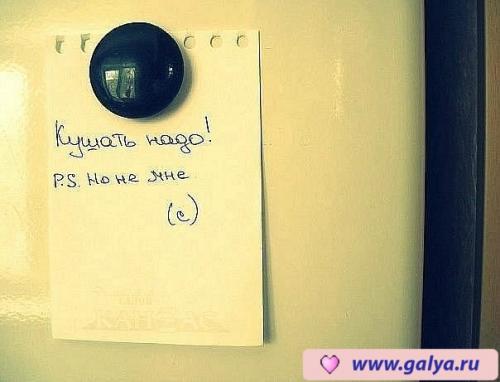 Кушать надо!
P.S. Но не мне
(с)
www.galya.ru